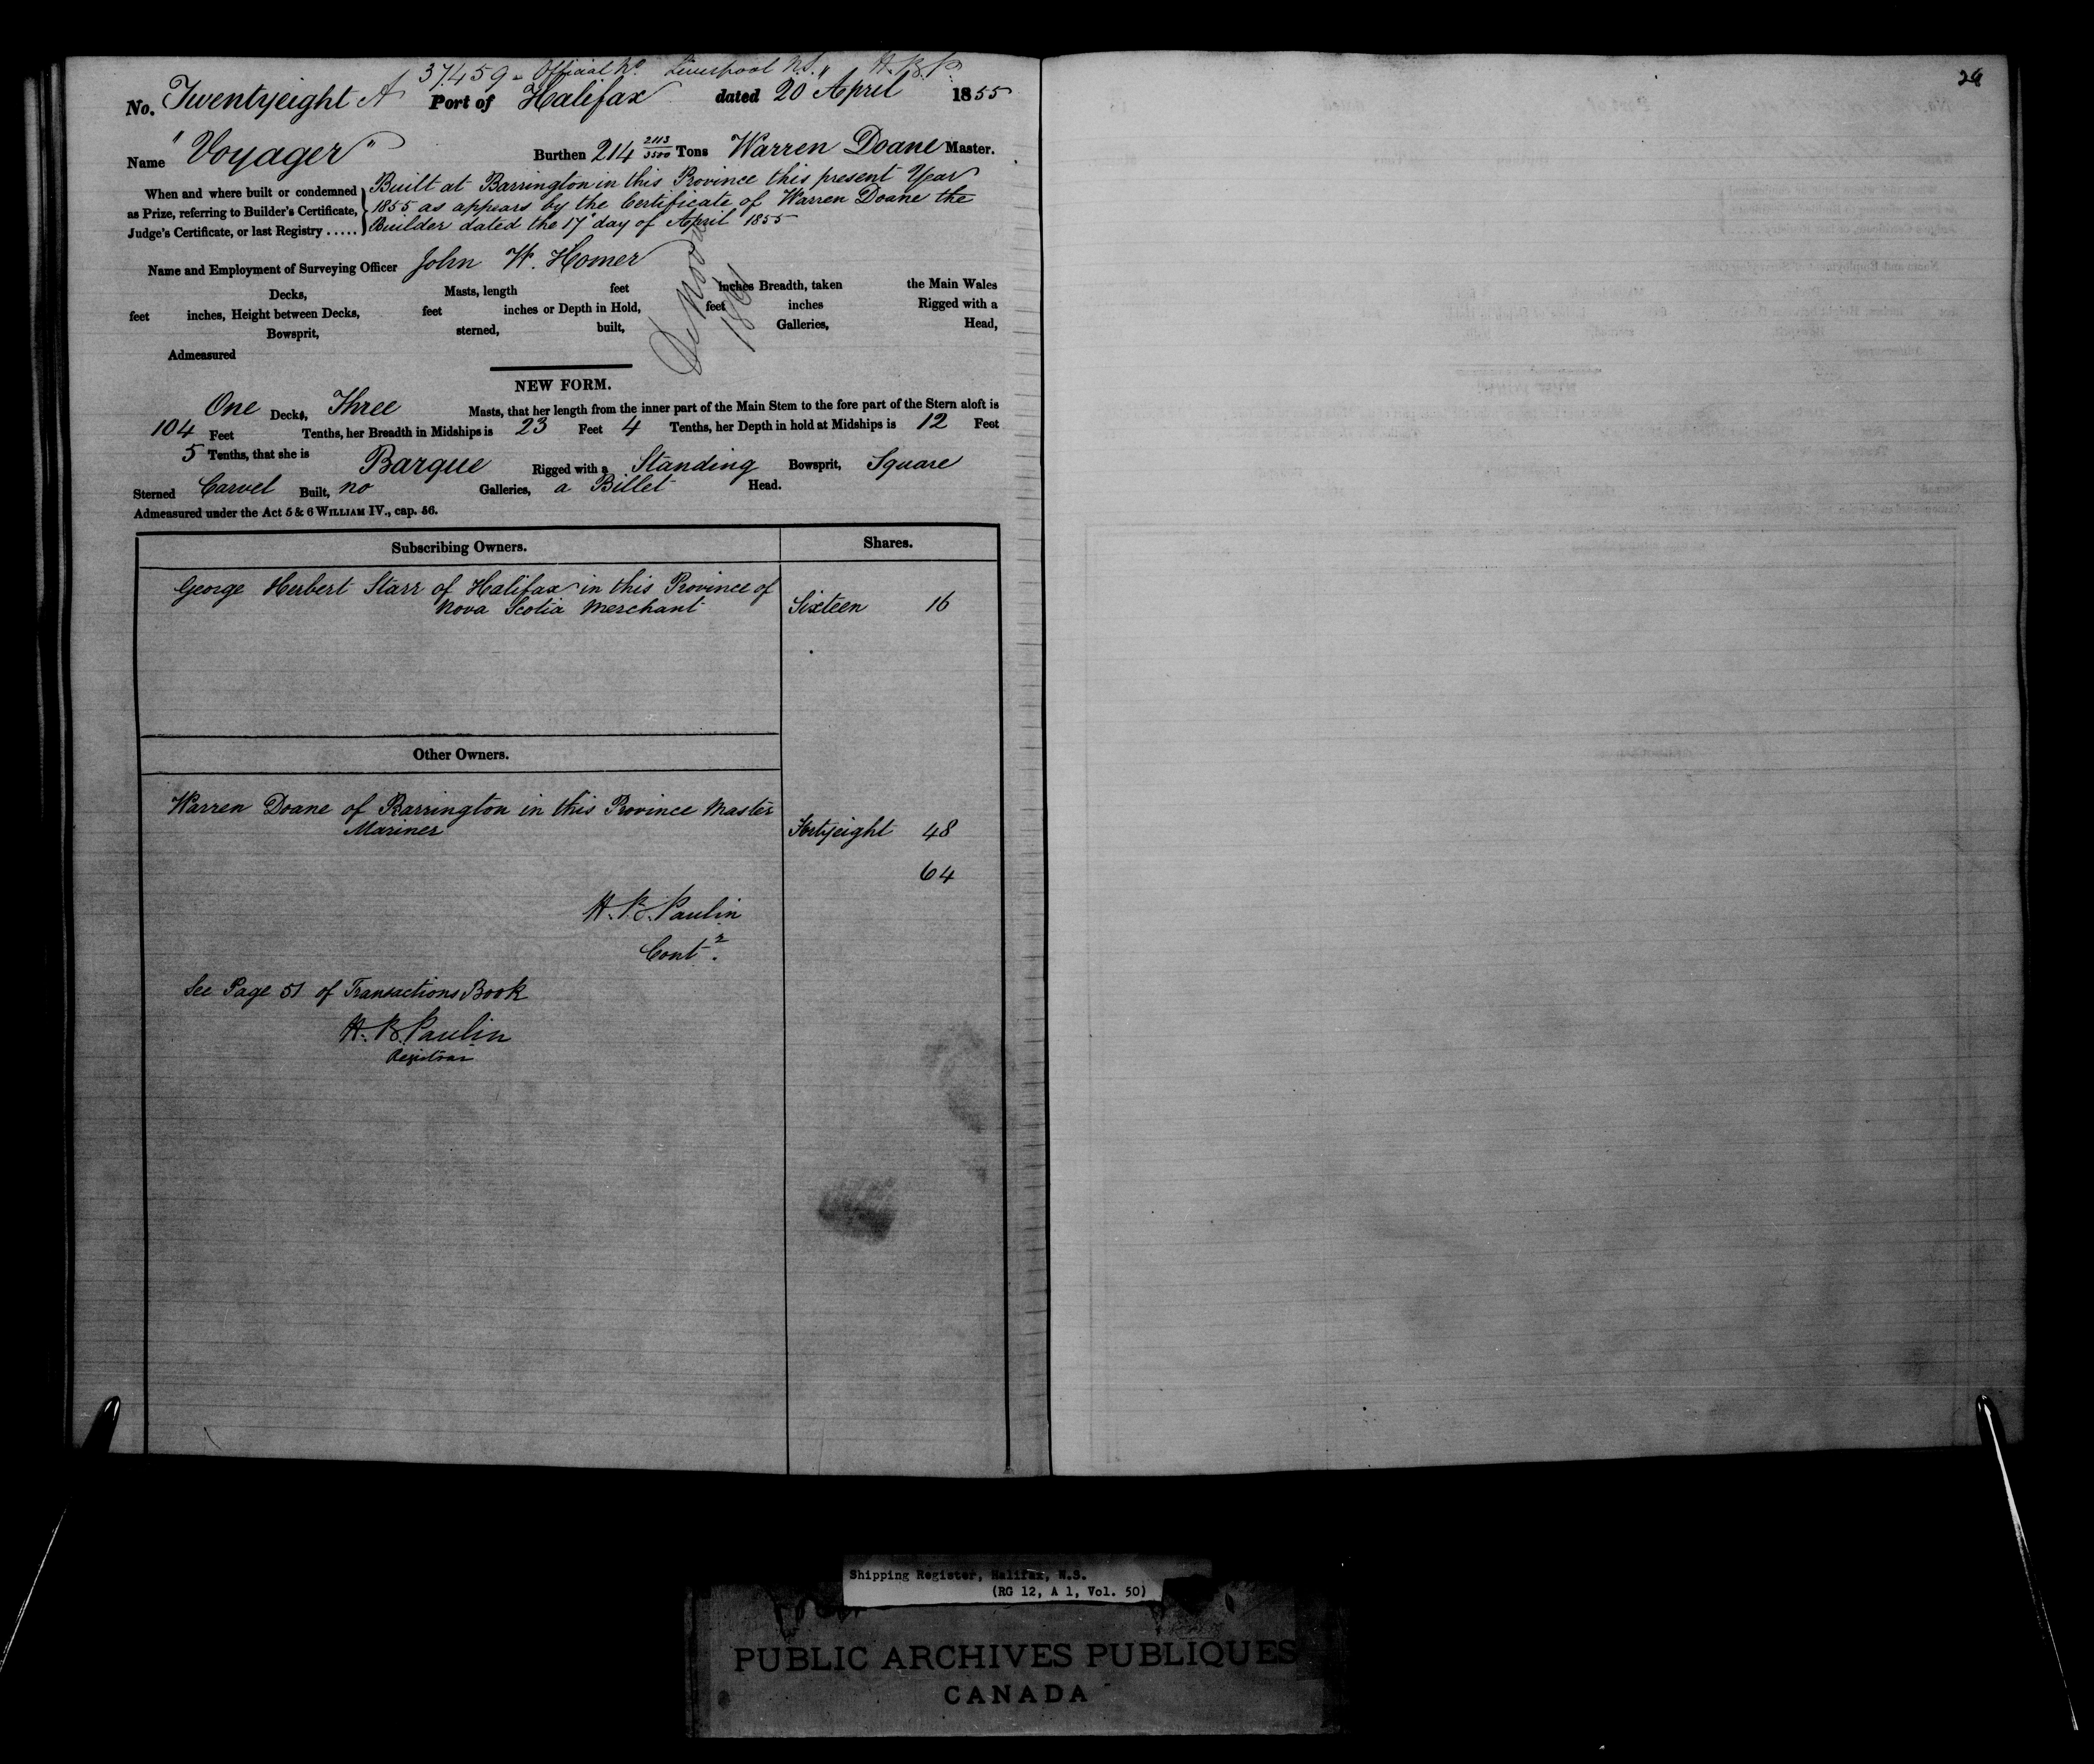 37.459 - Official No. Liverpool N.S. " H.B.P.
No. Twentyeight A Port of Halifax dated 20 April 1855
Name "Voyager" Burthen 214 2113/3500 Tons Warren Doane Master.
When and where built or condemned as Prize, referring to Builder's Certificate, Judge's Certificate, or last Registry .....
Built at Barrington in this Province this present Year
1855 as appears by the Certificate of Warren Doane the
Builder dated the 17 day of April 1855
Name and Employment of Surveying Officer John W. Homer
Decks, Masts, length feet inches Breadth, taken the Main Wales
feet inches, Height between Decks, feet inches or Depth in Hold, feet inches Rigged with a
Bowsprit, sterned, built, Galleries, Head,
Admeasured
De Novo
NEW FORM.
One Decks, Three Masts, that her length from the inner part of the Main Stem to the fore part of the Stern aloft is
104 Feet Tenths, her Breadth in Midships is 23 Feet 4 Tenths, her Depth in hold at Midships is 12 Feet
5 Tenths, that she is Barque Rigged with a Standing Bowsprit, Square
Sterned Carvel Built, no Galleries, a Billet Head.
Admeasured under the Act 5 & 6 WILLIAM IV., cap. 56.
Subscribing Owners. Shares.
George Herbert Starr of Halifax in this Province of
Nova Scotia Merchant Sixteen 16
Other Owners.
Warren Doane of Barrington in this Province Master
Mariner Fortyeight 48
64
H. B. Paulin
Contr.
See Page 51 of Transactions Book
H. B. Paulin
Registrar
Shipping Register, Halifax, N.S.
(RG 12, A 1, Vol. 50)
PUBLIC ARCHIVES PUBLIQUES
CANADA